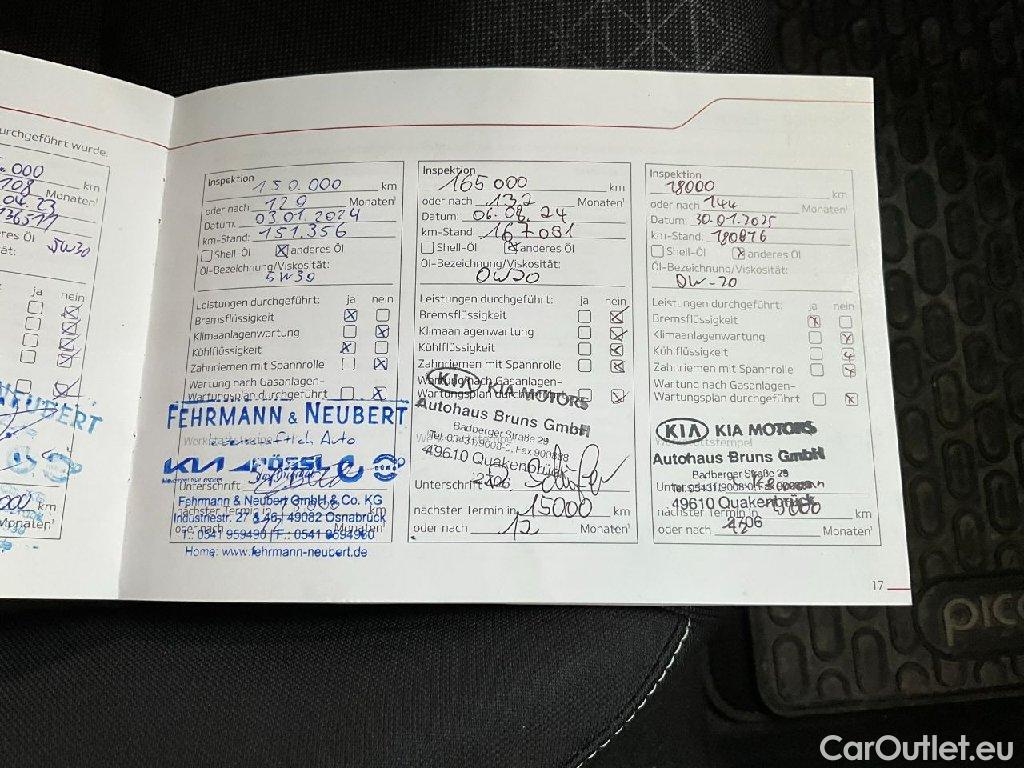 urchgeführt wurde.
.000
km
108
Monaten¹
04.23
136511
eres Öl
5W30
ät:
ja nein
NEUBERT
km
Monaten¹
Inspektion
150.000 km
oder nach 120 Monaten¹
Datum: 03.01.2024
km-Stand: 151.356
Shell-Öl anderes Öl
Öl-Bezeichnung/Viskosität:
5W30
Leistungen durchgeführt: ja nein
Bremsflüssigkeit
Klimaanlagenwartung
Kühlflüssigkeit
Zahnriemen mit Spannrolle
Wartung nach Gasanlagen-
Wartungsplan durchgeführt
FEHRMANN & NEUBERT
KIA PÖSSL
Unterschrift
Fehrmann & Neubert GmbH & Co. KG
Industriestr. 27 & 46, 49082 Osnabrück
nächster Termin in
oder nach Monaten¹
T.: 0541 959490 F.: 0541 9594960
Home: www.fehrmann-neubert.de
Inspektion
165000 km
oder nach 132 Monaten¹
Datum: 06.08.24
km-Stand: 167081
Shell-Öl anderes Öl
Öl-Bezeichnung/Viskosität:
0W30
Leistungen durchgeführt: ja nein
Bremsflüssigkeit
Klimaanlagenwartung
Kühlflüssigkeit
Zahnriemen mit Spannrolle
Wartung nach Gasanlagen-
Wartungsplan durchgeführt
KIA KIA MOTORS
Autohaus Bruns GmbH
Badberger Straße 29
49610 Quakenbrück
Unterschrift
nächster Termin in 15000 km
oder nach 12 Monaten¹
Inspektion
18000 km
oder nach 144 Monaten¹
Datum: 30.01.2025
km-Stand: 180876
Shell-Öl anderes Öl
Öl-Bezeichnung/Viskosität:
0W-20
Leistungen durchgeführt: ja nein
Bremsflüssigkeit
Klimaanlagenwartung
Kühlflüssigkeit
Zahnriemen mit Spannrolle
Wartung nach Gasanlagen-
Wartungsplan durchgeführt
KIA KIA MOTORS
Autohaus Bruns GmbH
Badberger Straße 29
49610 Quakenbrück
nächster Termin in km
oder nach Monaten¹
17
pic
CarOutlet.eu